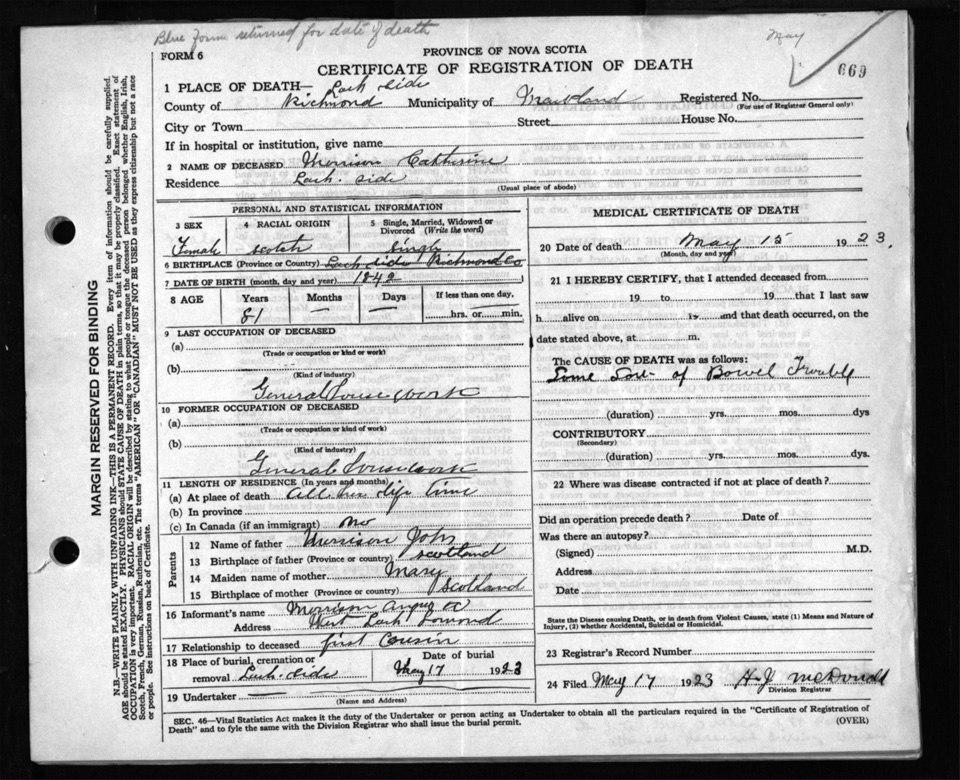 Blue Form returned for date of death
May
FORM 6
PROVINCE OF NOVA SCOTIA
CERTIFICATE OF REGISTRATION OF DEATH
669
1 PLACE OF DEATH— Loch Side
County of Richmond Municipality of Registered No.
(For use of Registrar General only)
City or Town Street House No.
If in hospital or institution, give name
2 NAME OF DECEASED Morrison Catherine
Residence Loch. Side
(Usual place of abode)
PERSONAL AND STATISTICAL INFORMATION
3 SEX 4 RACIAL ORIGIN 5 Single, Married, Widowed or Divorced (Write the word)
Female Scotch Single
6 BIRTHPLACE (Province or Country) Loch Side Richmond Co
7 DATE OF BIRTH (month, day and year) 1842
8 AGE Years Months Days If less than one day,
81 — — hrs. or min.
9 LAST OCCUPATION OF DECEASED
(a)
(Trade or occupation or kind or work)
(b)
(Kind of industry)
General House Work
10 FORMER OCCUPATION OF DECEASED
(a)
(Trade or occupation or kind or work)
(b)
(Kind of industry)
General Housework
11 LENGTH OF RESIDENCE (In years and months)
(a) At place of death all her life time
(b) In province
(c) In Canada (if an immigrant) no
Parents
12 Name of father Morrison John
13 Birthplace of father (Province or country) Scotland
14 Maiden name of mother Mary
15 Birthplace of mother (Province or country) Scotland
16 Informant's name Morrison Angus
Address West Loch Lomond
17 Relationship to deceased first Cousin
18 Place of burial, cremation or removal Loch. Side Date of burial May 17 1923
19 Undertaker —
(Name and Address)
MEDICAL CERTIFICATE OF DEATH
20 Date of death May 15 1923.
(Month, day and year)
21 I HEREBY CERTIFY, that I attended deceased from
19 to 19 that I last saw
h alive on 19 and that death occurred, on
date stated above, at m.
The CAUSE OF DEATH was as follows:
Some Sort of Bowel Trouble
(duration) yrs. mos. dys
CONTRIBUTORY
(Secondary)
(duration) yrs. mos. dys.
22 Where was disease contracted if not at place of death?
Did an operation precede death? Date of
Was there an autopsy?
(Signed) M.D.
Address
Date
State the Disease causing Death, or in death from Violent Causes, state (1) Means and Nature of Injury, (2) whether Accidental, Suicidal or Homicidal.
23 Registrar's Record Number
24 Filed May 17 1923 H. J. McDonald
Division Registrar
SEC. 46—Vital Statistics Act makes it the duty of the Undertaker or person acting as Undertaker to obtain all the particulars required in the "Certificate of Registration of
Death" and to fyle the same with the Division Registrar who shall issue the burial permit.
(OVER)
MARGIN RESERVED FOR BINDING
N.B.—WRITE PLAINLY WITH UNFADING INK—THIS IS A PERMANENT RECORD. Every item of information should be carefully supplied.
AGE should be stated EXACTLY. PHYSICIANS should STATE CAUSE OF DEATH in plain terms, so that it may be properly classified. Exact statement of
OCCUPATION is very important. RACIAL ORIGIN will be described by stating to what people or tongue the deceased person belonged whether English, Irish,
Scotch, French, German, Russian, Ruthenian, etc. The terms "AMERICAN" or "CANADIAN" MUST NOT BE USED as they express citizenship but not a race
or people. See instructions on back of Certificate.